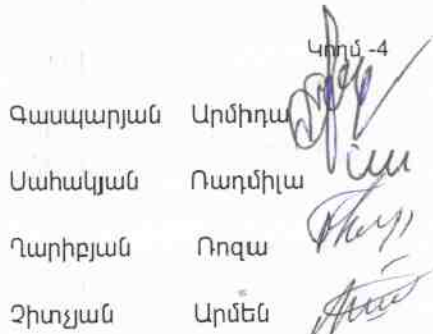 Կողմ -4
Գասպարյան Արմիդա
Սահակյան Ռադմիլա
Ղարիբյան Ռոզա
Չիտչյան Արմեն